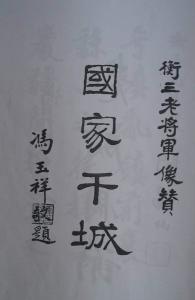 衡三老將軍像贊
國家干城
馮玉祥敬題